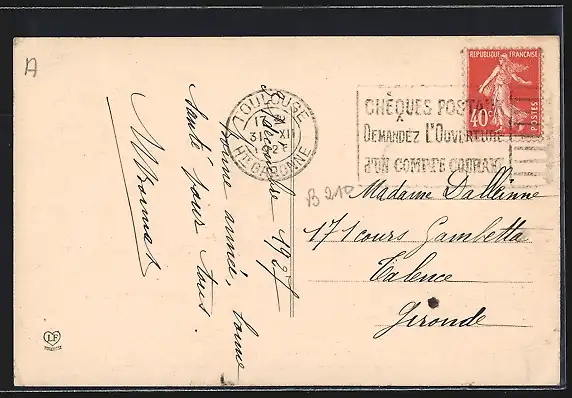 A
TOULOUSE
31 XII
Hte GARONNE
CHÈQUES POSTAUX
DEMANDEZ L'OUVERTURE
D'UN COMPTE COURANT
REPUBLIQUE FRANÇAISE
40c
POSTES
B 210
Décembre 1927
bonne année, bonne
santé pour tous.
Madame Dallinne
171 cours Gambetta
Talence
Gironde
LF